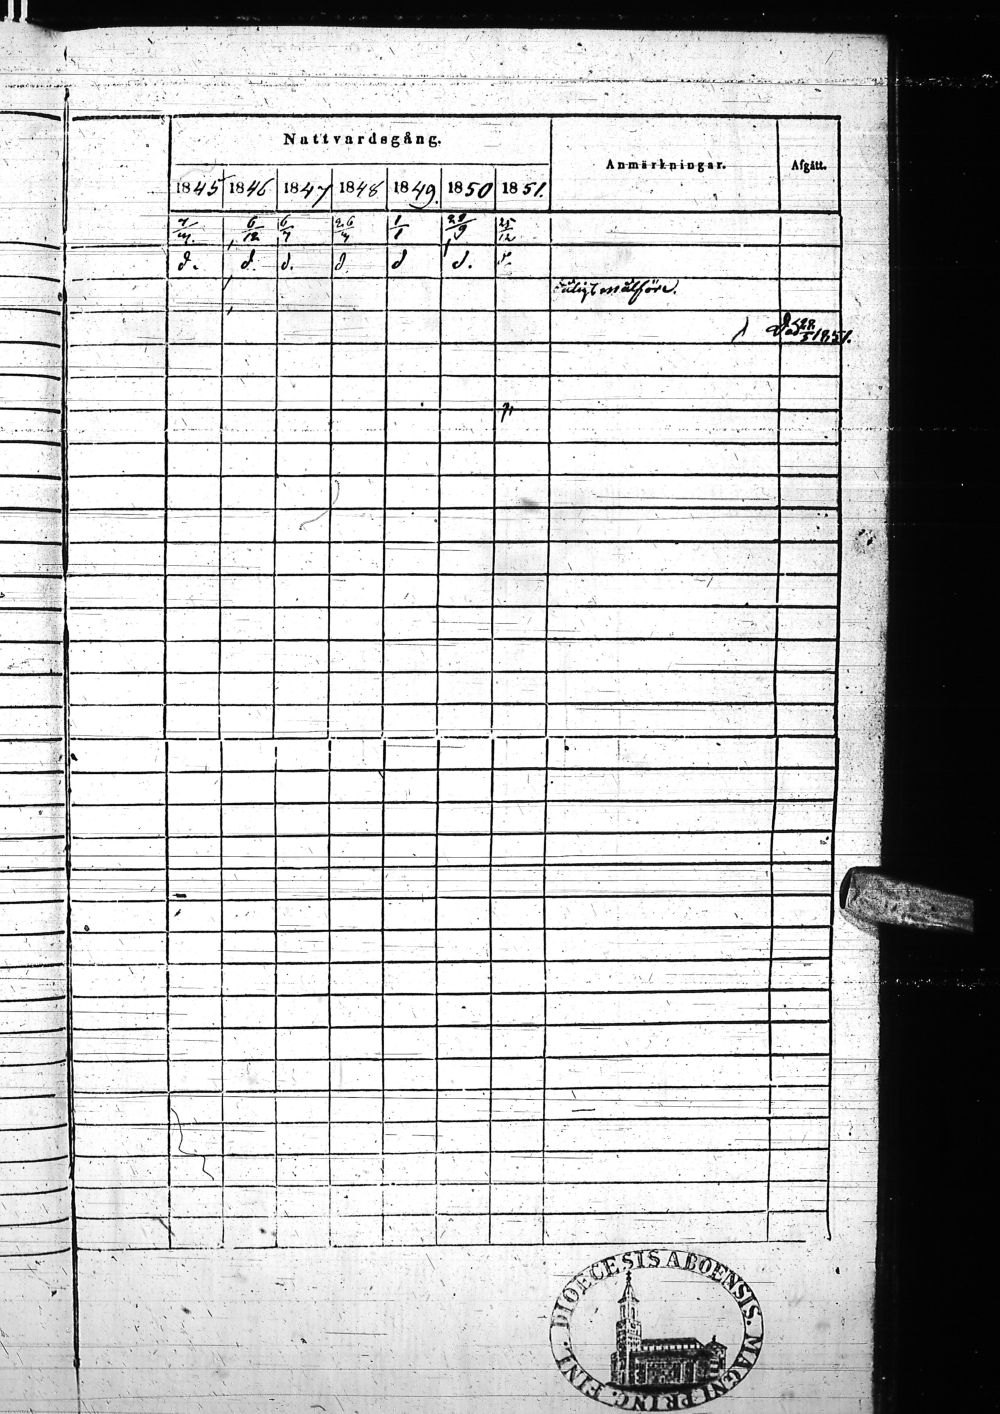 Nattvardsgång.
Anmärkningar.
Afgått.
1845 1846 1847 1848 1849. 1850 1851.
6/12 6/7 26/ 1/1 29/9 25/12
d. d. d. d d d. d.
målföre.
Död 28/5 1851.
DIOECESIS ABOENSIS. MAGNI PRINC. FINL.